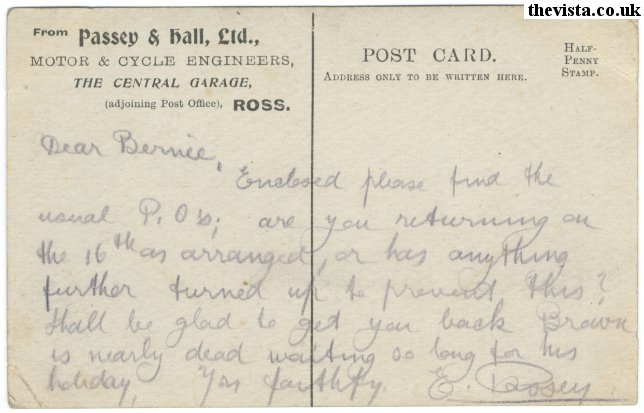 thevista.co.uk
From Passey & Hall, Ltd.,
MOTOR & CYCLE ENGINEERS,
THE CENTRAL GARAGE,
(adjoining Post Office), ROSS.
POST CARD.
ADDRESS ONLY TO BE WRITTEN HERE.
HALF-
PENNY
STAMP.
Dear Bernie,
Enclosed please find the
usual P.O's; are you returning on
the 16th as arranged, or has anything
further turned up to prevent this?
Shall be glad to get you back Brown
is nearly dead waiting so long for his
holiday, Yrs faithfy E. Passey